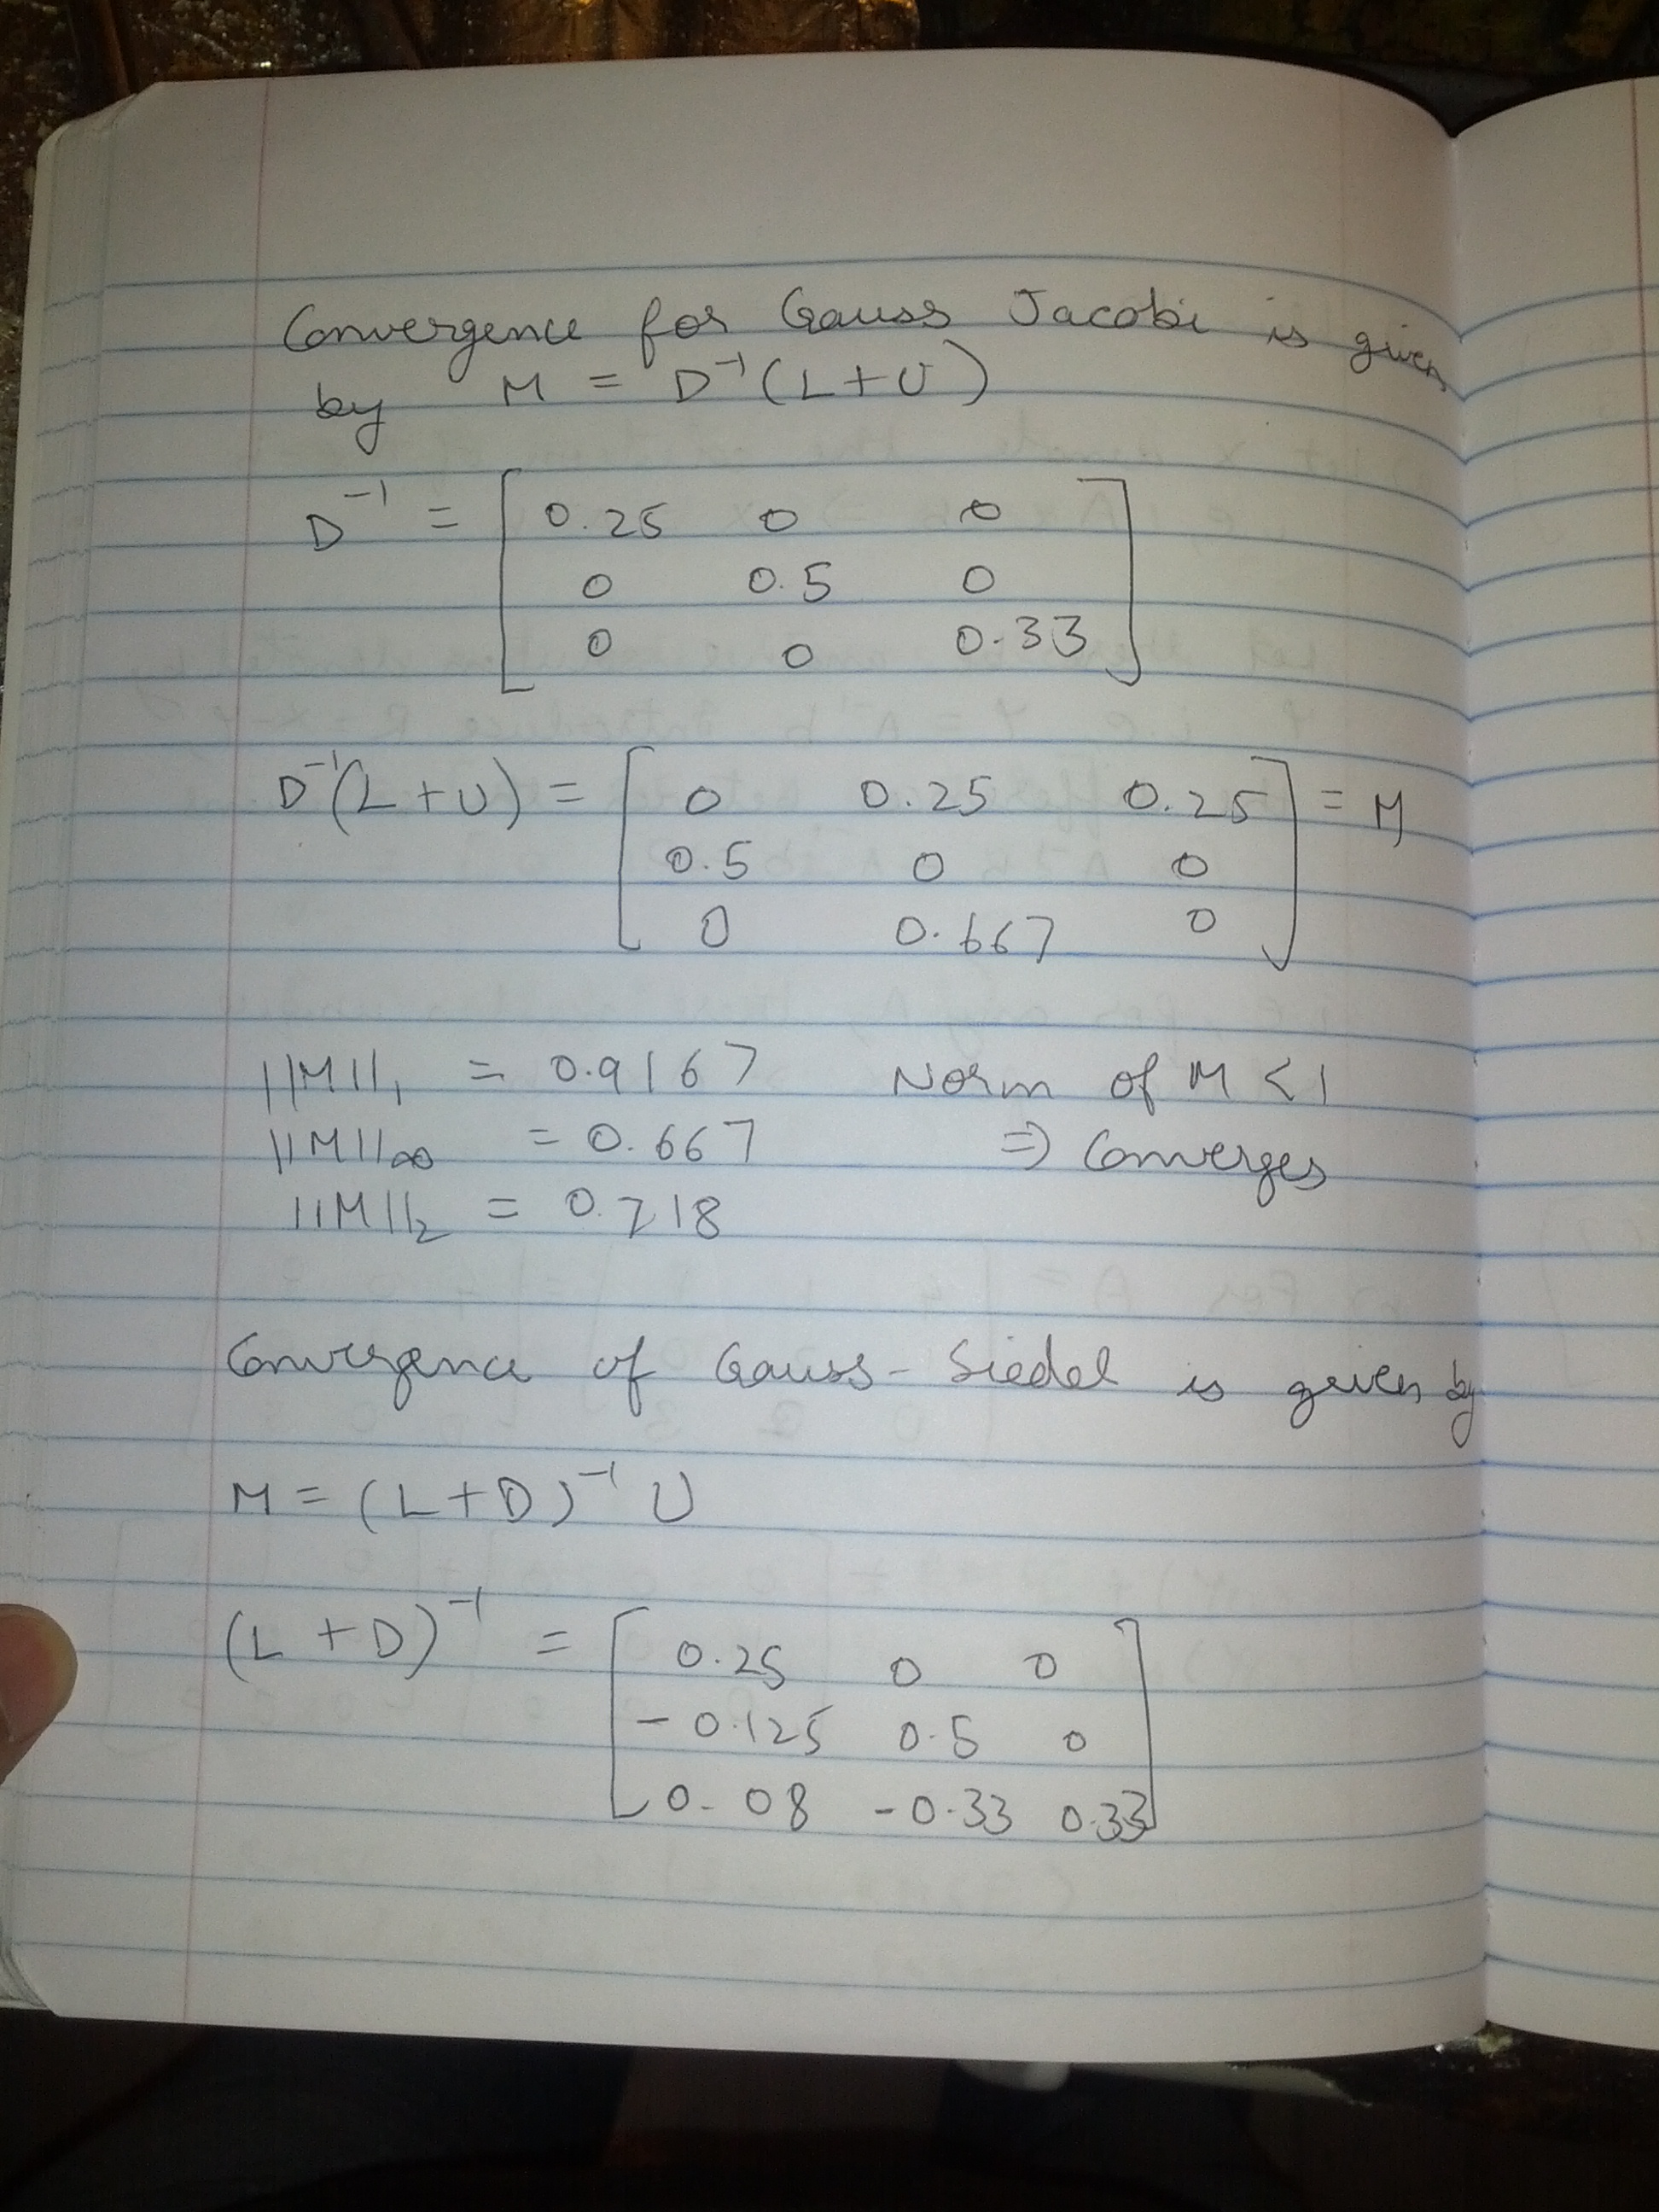 Convergence for Gauss Jacobi is given
by M = D⁻¹(L+U)
D⁻¹ = [ 0.25 0 0
0 0.5 0
0 0 0.33 ]
D⁻¹(L+U) = [ 0 0.25 0.25 ] = M
0.5 0 0
0 0.667 0
||M||₁ = 0.9167 Norm of M < 1
||M||∞ = 0.667 ⇒ Converges
||M||₂ = 0.718
Convergence of Gauss-Siedel is given by
M = (L+D)⁻¹ U
(L+D)⁻¹ = [ 0.25 0 0
-0.125 0.5 0
0.08 -0.33 0.33 ]